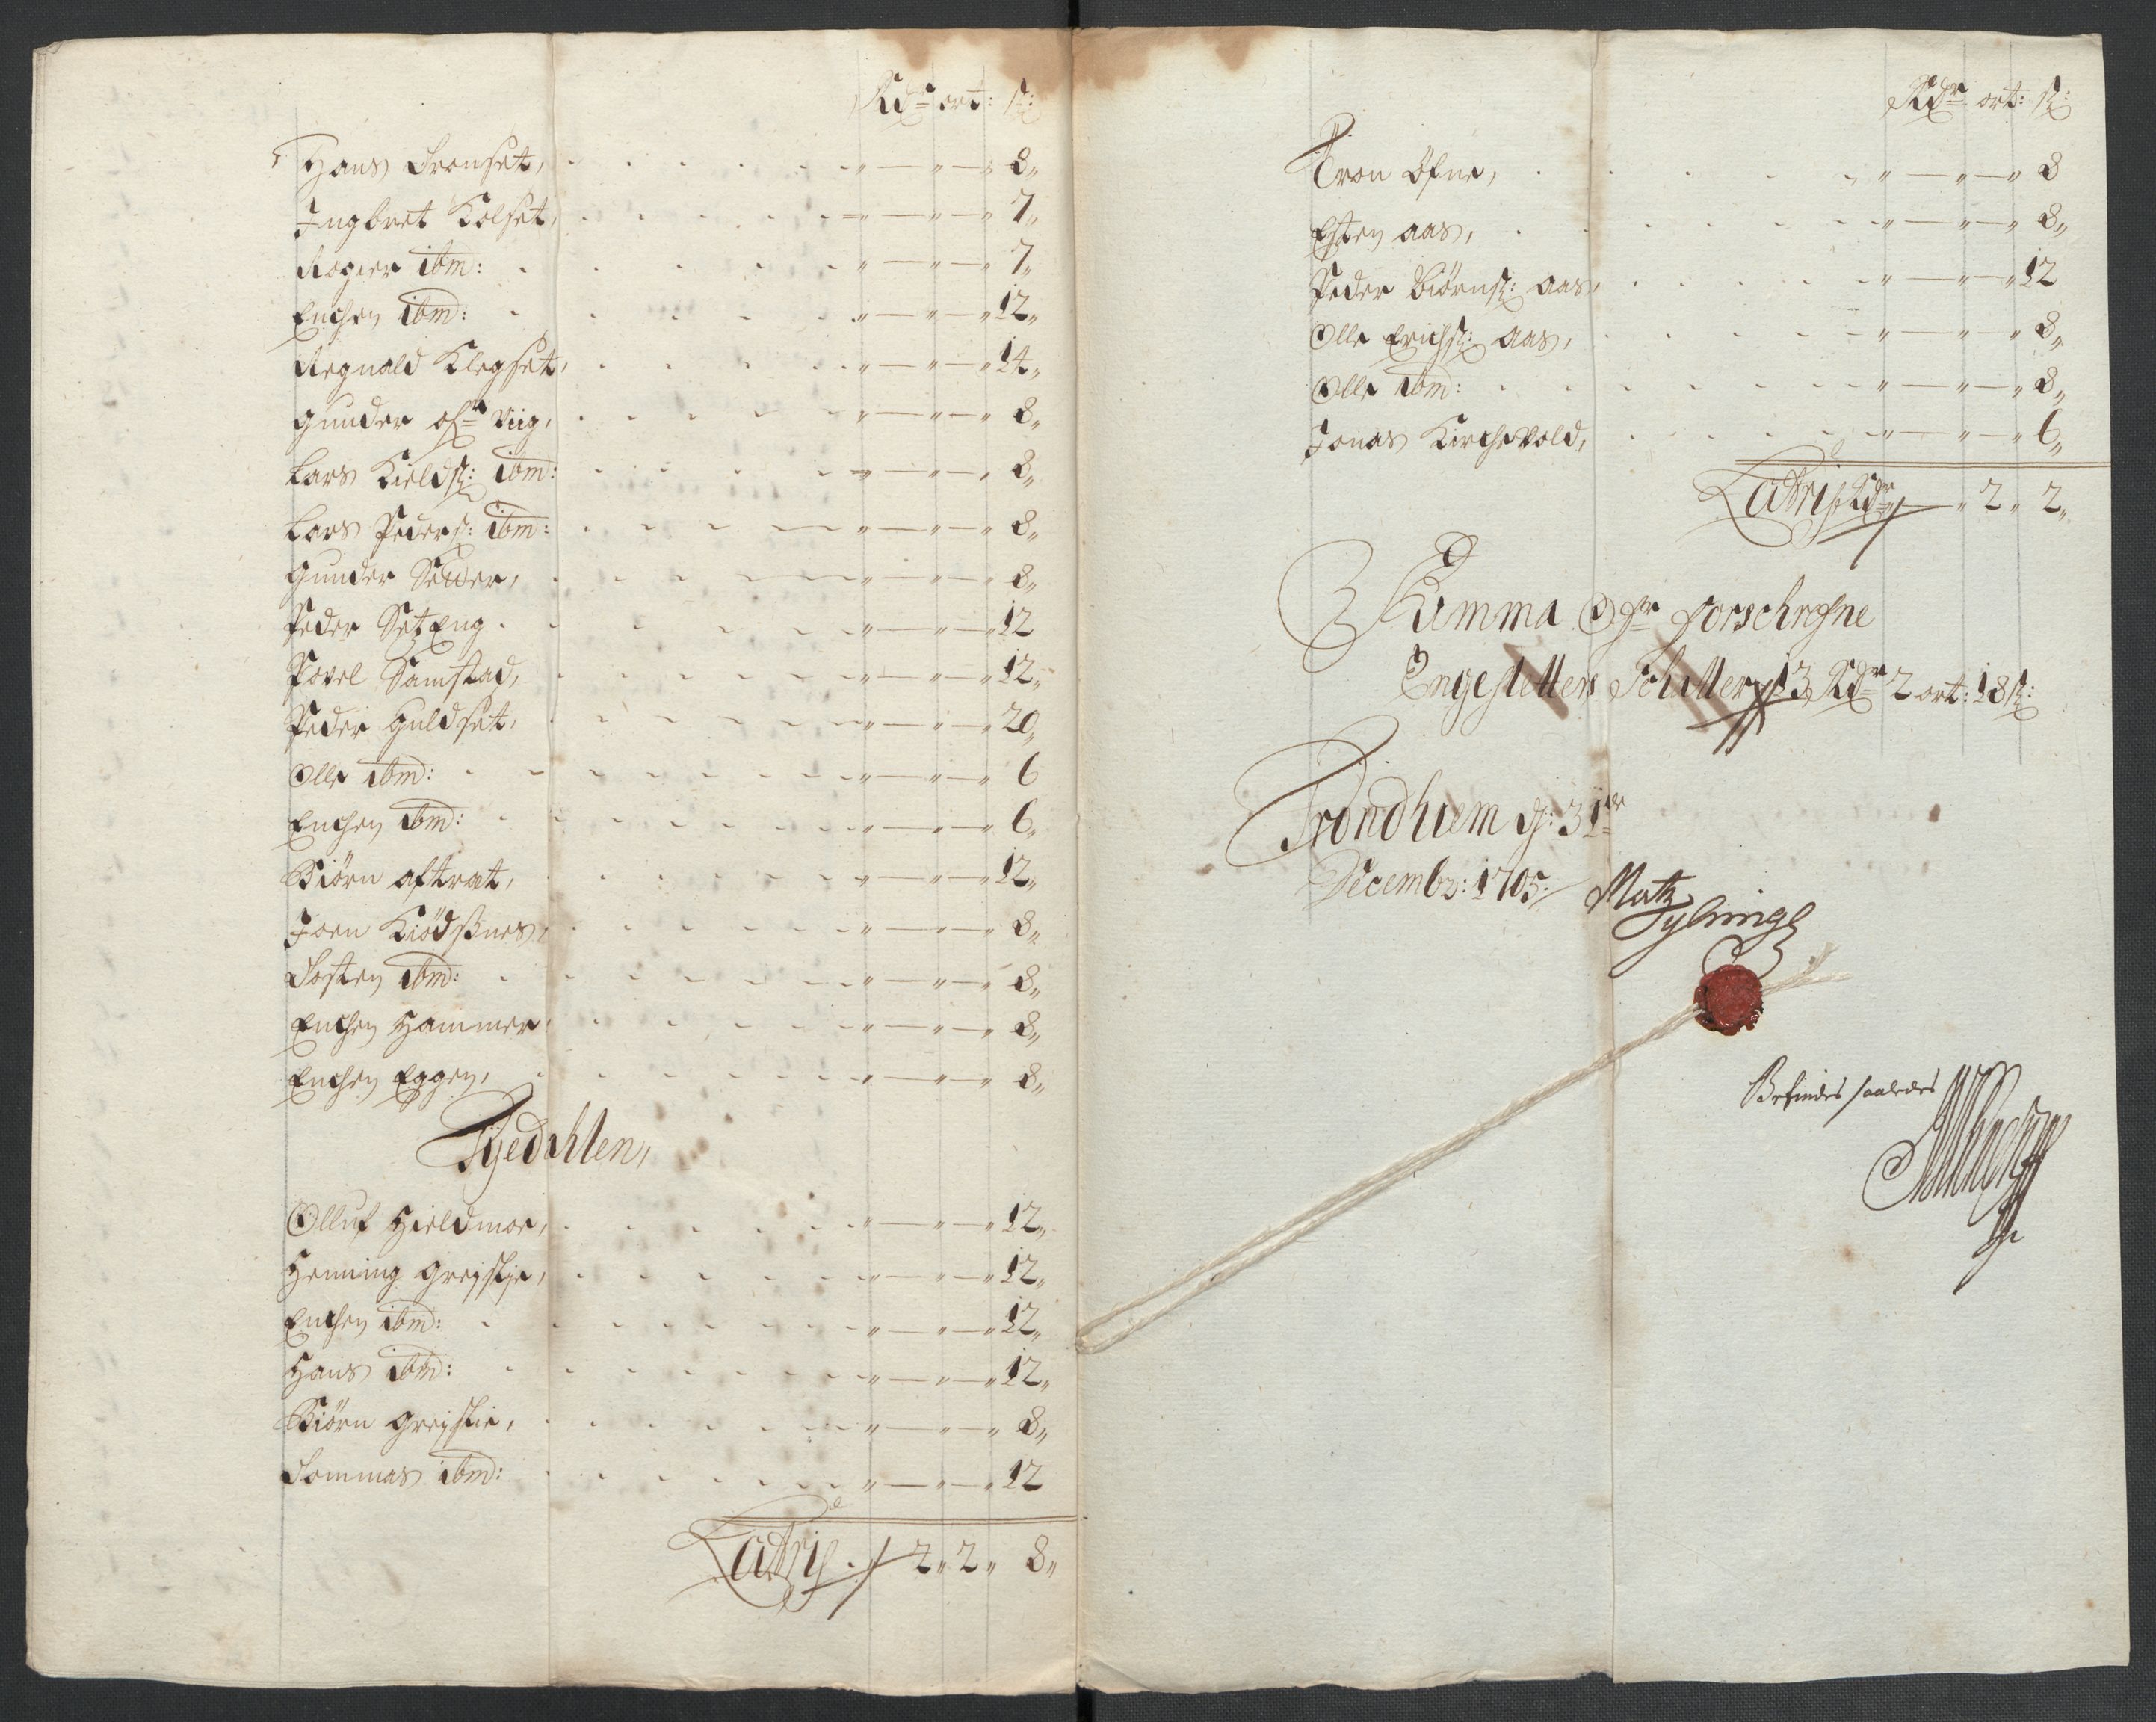 Rdr ort: s:
Hans Tronset, " — " — " 8"
Ingbret Kolset, " — " — " 7"
Roger ibm: " — " — " 7"
Enchen ibm: " — " — " 12"
Regnald Klegset, " — " — " 14"
Gunder ofr Viig, " — " — " 8"
Lars Kields: ibm: " — " — " 8"
Lars Peders: ibm: " — " — " 8"
Gunder " — " — " 8"
Peder SetEng " — " — " 12
Povel Samstad, " — " — " 12"
Peder Guldset, " — " — " 20"
Olle ibm: " — " — " 6
Enchen ibm: " — " — " 6"
Biörn aftret, " — " — " 12"
Joen Kiödsnes, " — " — " 8"
Tosten ibm: " — " — " 8"
Enchen Hammer " — " — " 8"
Enchen Eggen, " — " — " 8"
Tyedahlen,
Olluf Hieldmoe, " — " — " 12"
Henning Greisslie, " — " — " 12"
Enchen ibm: " — " — " 12"
Hans ibm: " — " — " 12"
Biörn Greisslie, " — " — " 8"
Tommas ibm: " — " — " 12
Latris 2" 2" 8"
Rdr ort: s:
Tron Öfne, " — " — " 8
Esten Aas, " — " — " 8"
Peder Biörns: Aas, " — " — " 12
Olle Erichs: Aas, " — " — " 8"
Olle ibm: " — " — " 8"
Jonas Kirchevold, " — " — " 6"
Latris Rdr " 2" 2"
Summa Ofr forschrefne
Ungesletters Schatter 13 Rdr 2 ort: 18 s:
Trondhiem d: 31te
Decembr: 1705.
Matz
Tylring
Befindes saaledes